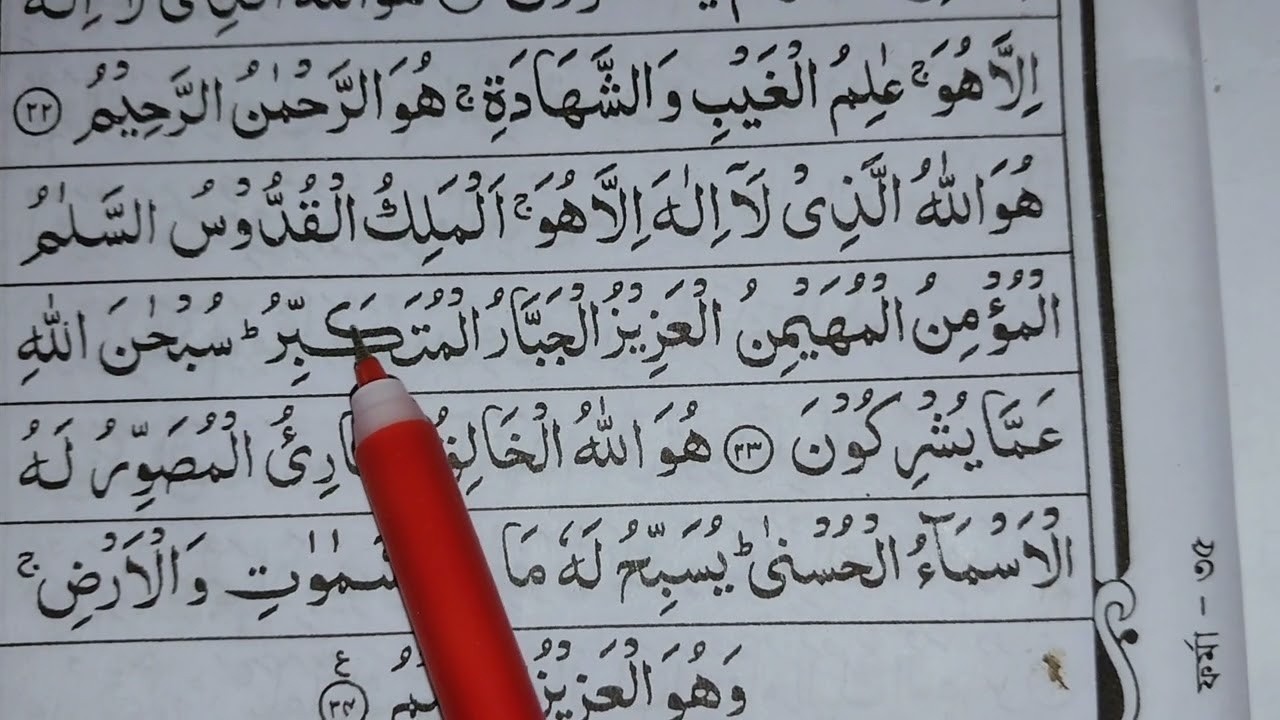 اِلَّا هُوَ ۚ عٰلِمُ الْغَيْبِ وَالشَّهَادَةِ ۚ هُوَ الرَّحْمٰنُ الرَّحِيْمُ ﴿٢٢﴾
هُوَ اللّٰهُ الَّذِىْ لَآ اِلٰهَ اِلَّا هُوَ ۚ اَلْمَلِكُ الْقُدُّوْسُ السَّلٰمُ
الْمُؤْمِنُ الْمُهَيْمِنُ الْعَزِيْزُ الْجَبَّارُ الْمُتَكَبِّرُ ؕ سُبْحٰنَ اللّٰهِ
عَمَّا يُشْرِكُوْنَ ﴿٢٣﴾ هُوَ اللّٰهُ الْخَالِقُ الْبَارِئُ الْمُصَوِّرُ لَهُ
الْاَسْمَآءُ الْحُسْنٰى ؕ يُسَبِّحُ لَهٗ مَا السَّمٰوٰتِ وَالْاَرْضِ ۚ
وَهُوَ الْعَزِيْزُ ﴿٢٤﴾ ع